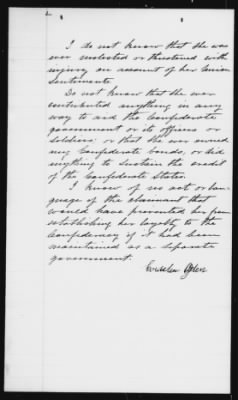 2
I do not know that she was
ever molested or threatened with
injury on account of her Union
sentiments.
Do not know that she ever
contributed anything in any
way to aid the Confederate
government or its officers or
soldiers; or that she ever owned
any Confederate bonds, or did
anything to sustain the credit
of the Confederate States.
I know of no act or lan-
guage of the claimant that
would have prevented her from
establishing her loyalty to the
Confederacy if it had been
maintained as a separate
government.
Ogden